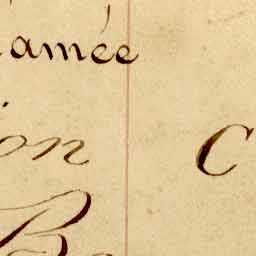 amée
ion C
Ba